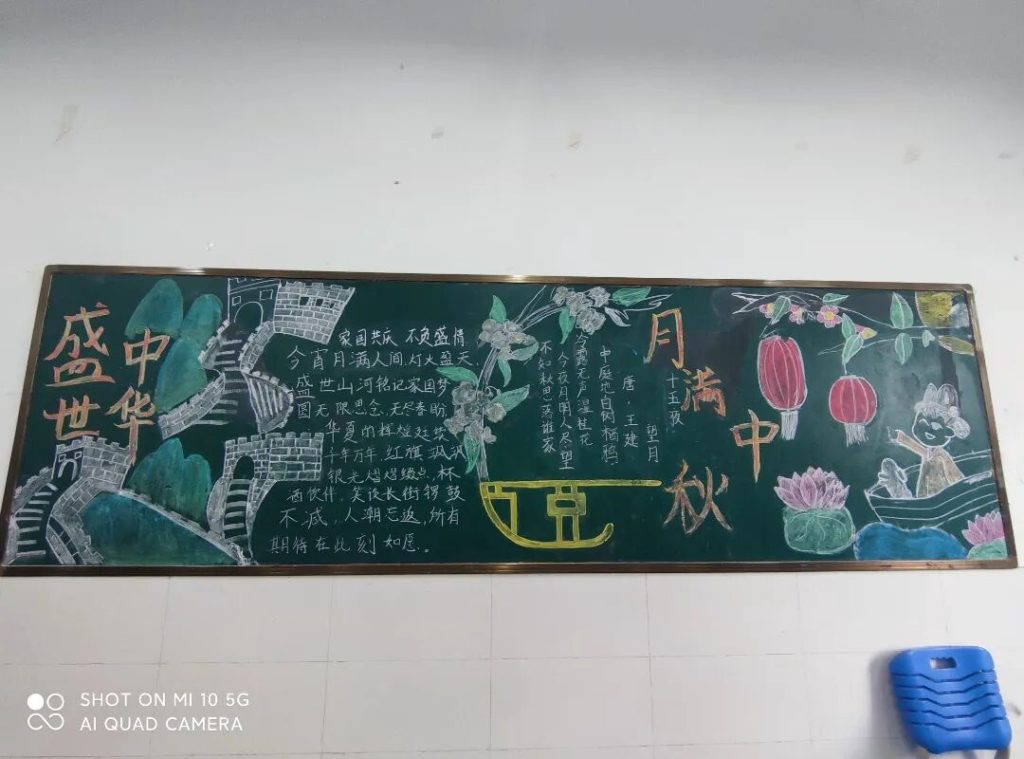 盛世
中华
家国共庆 不负盛情
今宵月满人间灯火盈天
盛世山河铭记家国梦
图无限思念,无尽眷盼,
华夏的辉煌
千年万年 红旗飘
银光熠熠缀点,杯
酒饮伴,笑谈长街锣鼓
不减,人潮忘返,所有
期待在此刻如愿。
月满中秋
十五夜望月
唐·王建
中庭地白树栖鸦
冷露无声湿桂花
今夜月明人尽望
不知秋思落谁家
SHOT ON MI 10 5G
AI QUAD CAMERA